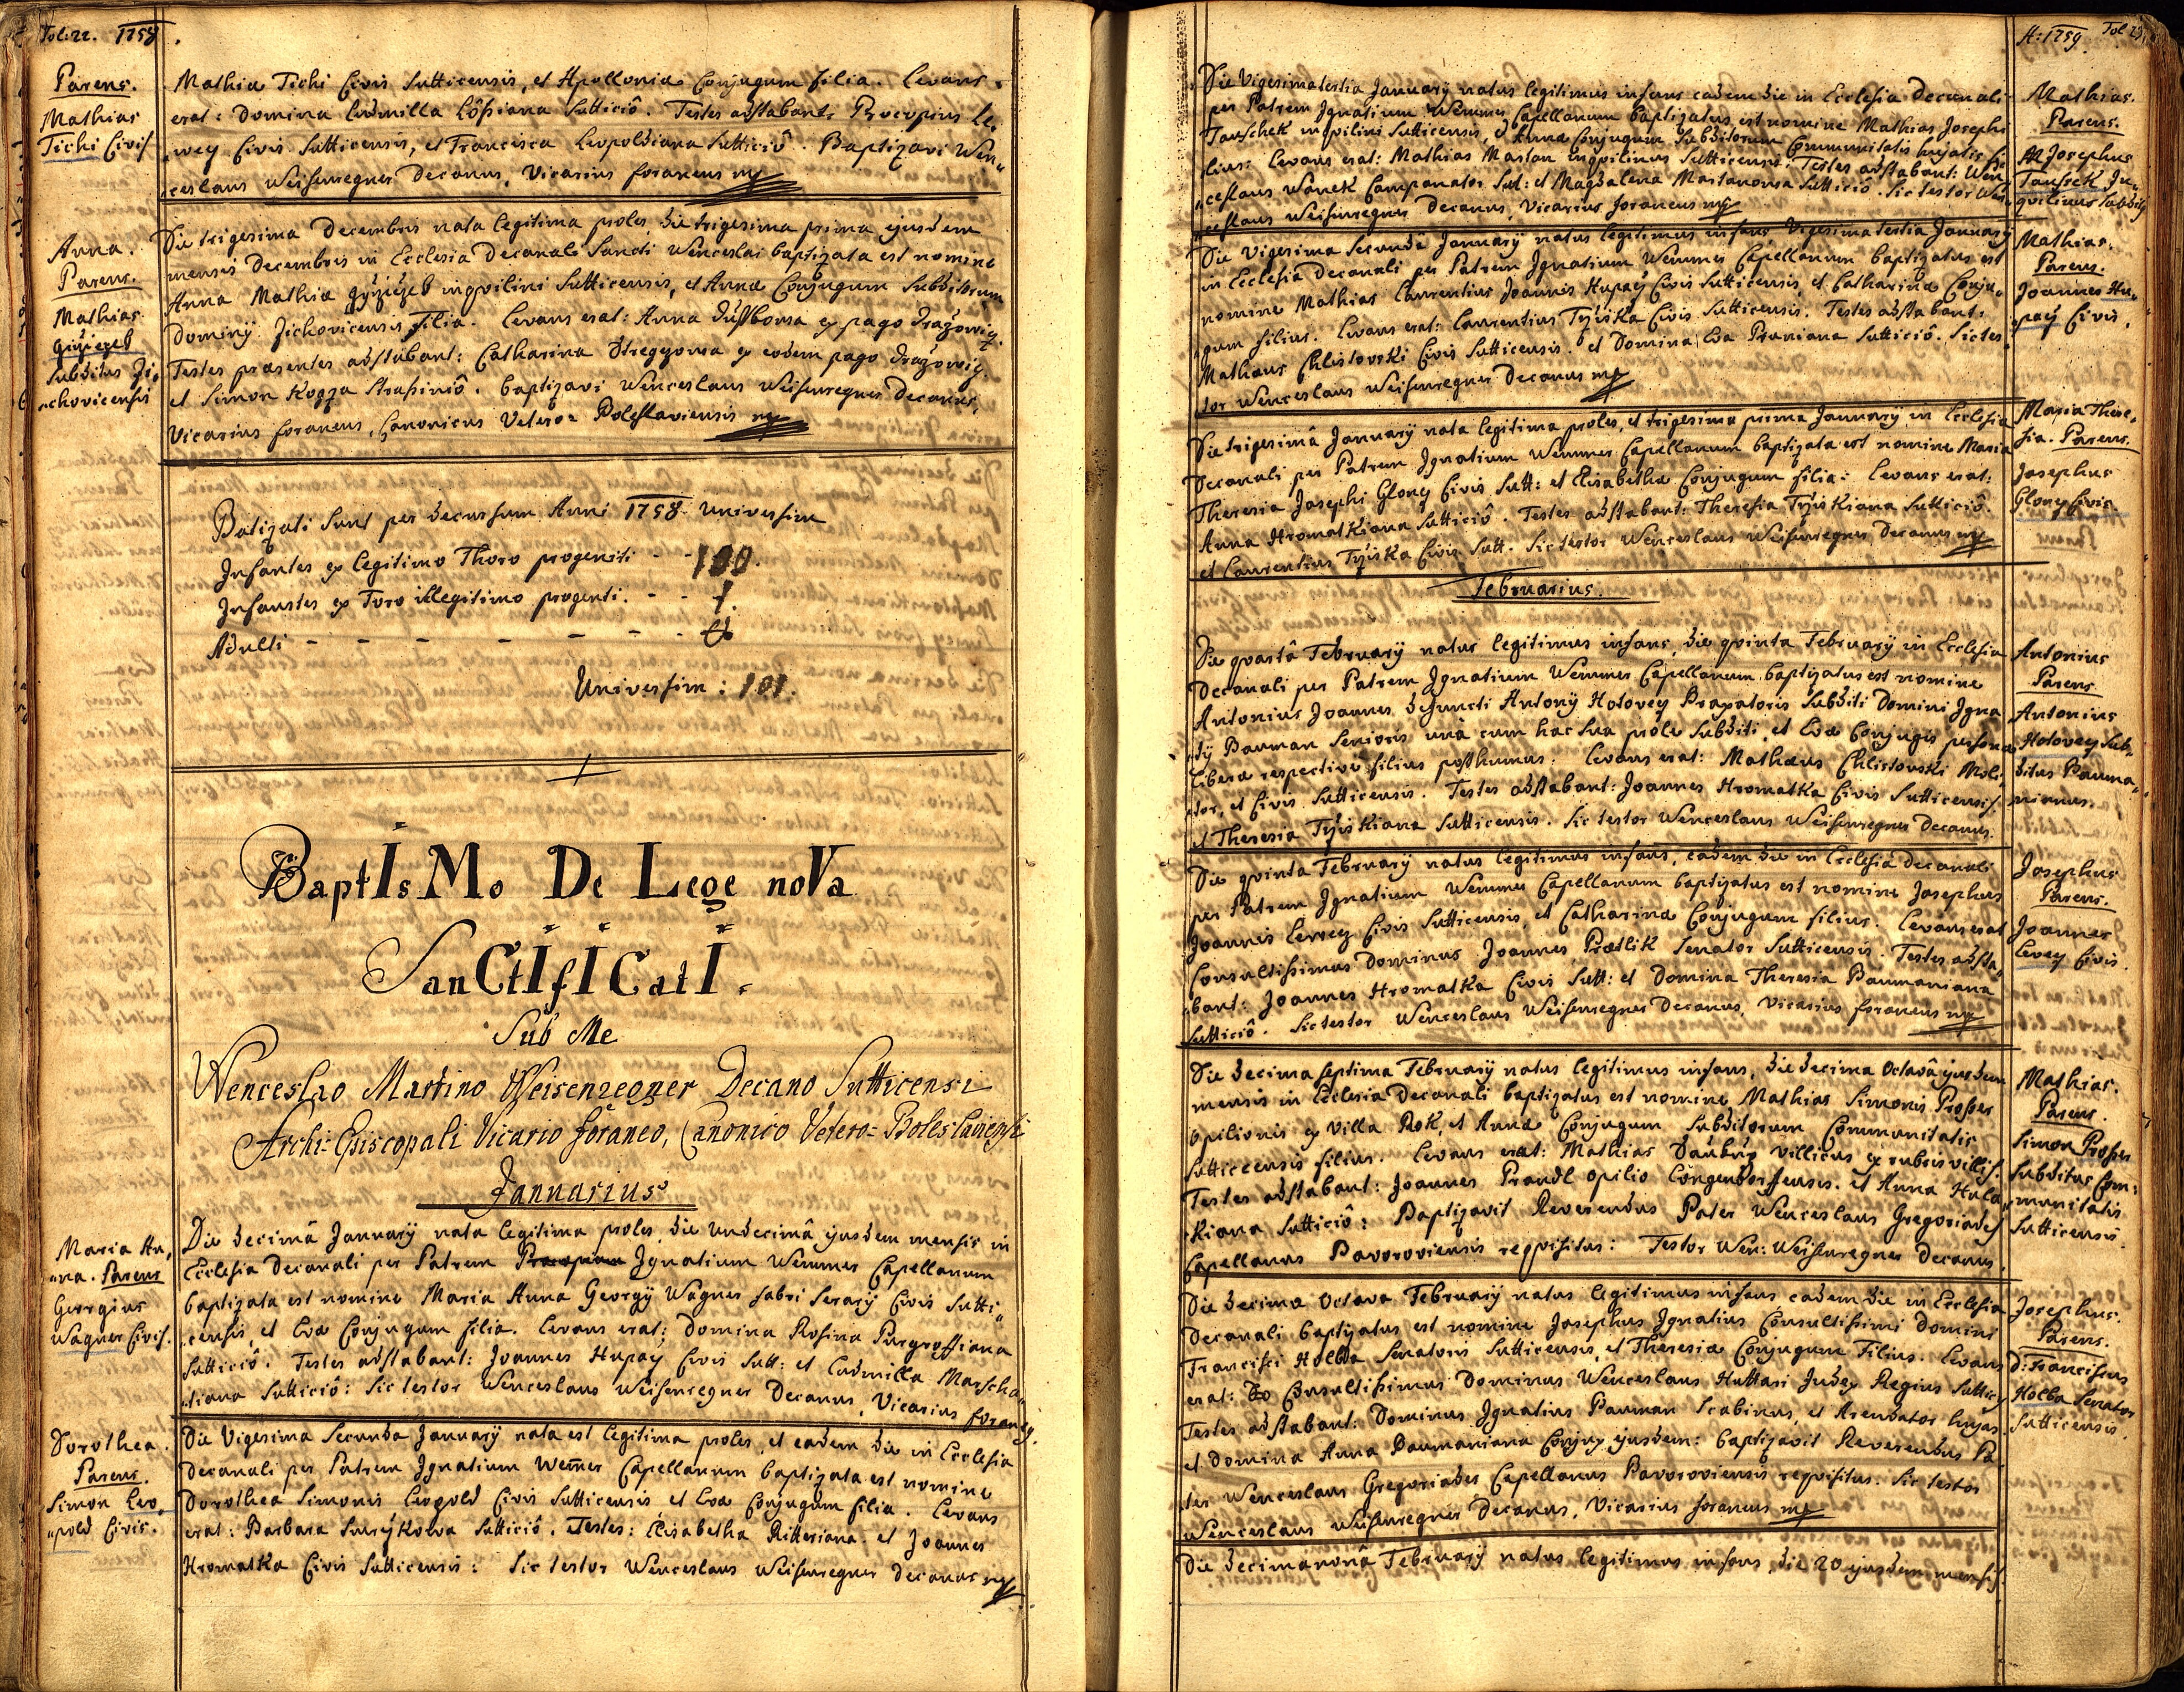 Fol: 22. 1758.
Parens.
Mathias
Tichi Civis
Mathiæ Tichi Civis Sutticensis, et Apolloniæ Conjugum filia. Levans
erat: Domina Ludmilla Suttició. Testes adstabant: Procopius Le,
,,wey Civis Sutticensis, et Francisca Leopoldiana Suttició. Baptizavi Wen,,
,,ceslaus Weisenregner Decanus, Vicarius foraneus mp
Anna.
Parens.
Mathias
Subditus Zi,
,,chovicensis
Die trigesima Decembris nata legitima proles, die trigesima prima ejusdem
menses Decembris in Ecclesia Decanali Sancti Wenceslai baptizata est nomine
Anna Mathiæ inqvilini Sutticensis, et Annæ Conjugum Subditorum
Dominÿ Zichovicensis filia. Levans erat: Anna ex pago Drażowiz.
Testes præsentes adstabant: Catharina ex eodem pago Drażowiz.
et Simon Kozza Strassinió. baptizavi Wenceslaus Weisenregner Decanus,
Vicarius foraneus, Canonicus Vetero=Boleslaviensis mp
Batizati Sunt per decursum Anni 1758. Universim
Infantes ex legitimo Thoro progeniti - - 100.
Infanstes ex Toro illegitimo progenti. - - 1.
Adulti - - - - - - - -
Universim: 101.
BaptIsMo De Lege noVa
SanCtIfICatI.
Sub Me
Wenceslao Martino Weisenregner Decano Sutticensi
Archi-Episcopali Vicario foraneo, Canonico Vetero=Boleslaviensi
Januarius
Maria An,
,,na. Parens
Georgius
Wagner Civis.
Die decimâ Januarÿ nata legitima proles, die undecimâ ejusdem mensis in
Ecclesia Decanali per Patrem Procopium Ignatium Wemmer Capellanum
baptizata est nomine Maria Anna Georgÿ Wagner fabri Serarÿ Civis Sutti,,
,,censis, et Evæ Conjugum filia. Levans erat: Domina Rosina Purgroffiana
Suttició. Testes adstabant: Joannes Hupaÿ Civis Sutt: et Ludmilla Marscha,,
,,tiana Suttició: Sic testor Wenceslaus Weisenregner Decanus, Vicarius foraneg.
Dorothea.
Parens.
Simon Leo,
,,pold Civis.
Die Vigesima Secunda Januarÿ nata est legitima proles, et eadem die in Ecclesia
Decanali per Patrem Ignatium Wem̃er Capellanum baptizata est nomine
Dorothea Simonis Leopold Civis Sutticensis et Evæ Conjugum filia. Levans
erat: Barbara Suttició. Testes: Elisabetha Ritteriana et Joannes
Hromatka Civis Sutticensis: Sic testor Wenceslaus Weisenregner Decanus mp
A: 1759. Fol 23.
Die Vigesima tertia Januarÿ natus legitimus infans eadem die in Ecclesia Decanali
per Patrem Ignatium Wemmer Capellanum baptizatus est nomine Mathias Josephi
Tauschek inqvilini Sutticensis, et Annæ Conjugum Subditorum Communitatis hujatis fi,
,,lius: Levans erat: Mathias Mastan inqvilinus Sutticensis: Testes adstabant: Wen,,
,,ceslaus Wanek Campanator Sut: et Magdalena Mastanowa Suttició. Sic testor Wen,,
,,ceslaus Weisenregner Decanus, Vicarius foraneus mp
Mathias.
Parens.
Josephus
Tauscek In,,
qvilinus Subdit9
Die Vigesima Secundâ Januarÿ natus legitimus infans, Vigesima tertia Januarÿ
in Ecclesia Decanali per Patrem Ignatium Wemmer Capellanum baptizatus est
nomine Mathias Laurentius Joannis Hupaÿ Civis Sutticensis, et Catharinæ Conju,,
,,gum filius. Levans erat: Laurentius Tÿiska Civis Sutticensis. Testes adstabant:
Mathæus Chlistovski Civis Sutticensis. et Domina Eva Pruniana Suttició. Sic tes,,
,,tor Wenceslaus Weisenregner Decanus mp
Mathias.
Parens.
Joannes Hu,,
,,paÿ Civis.
Die trigesimâ Januarÿ nata legitima proles, et trigesima prima Januarÿ in Ecclesia
Decanali per Patrem Ignatium Wemmer Capellanum baptizata est nomine Maria
Theresia Josephi Glony Civis Sutt: et Elisabethæ Conjugum filia: Levans erat:
Anna Hromatkiana Suttició. Testes adstabant: Theresia Tÿiskiana Suttició.
et Laurentius Tÿiska Civis Sutt. Sic testor Wenceslaus Weisenregner Decanus mp
Maria There,
sia. Parens.
Josephus
Glony Civis.
Februarius.
Die qvartâ Februarÿ natus legitimus infans, die qvinta Februarÿ in Ecclesia
Decanali per Patrem Ignatium Wemmer Capellanum baptizatus est nomine
Antonius Joannes defuncti Antonÿ Hotovey Braxatoris Subditi Domini Igna
,,tÿ Bauman Senioris unà cum hac sua prole Subditi, et Evæ Conjugis personæ
liberæ respectivè filius posthumus. Levans erat: Mathæus Chlistovski Moli,
,,tor, et Civis Sutticensis. Testes adstabant: Joannes Hromatka Civis Sutticensis.
et Theresia Tÿiskiana Sutticensis. Sic testor Wenceslaus Weisenregner Decanus.
Antonius
Parens
Antonius
Hotovey Sub,,
ditus Bauma,,
nianus.
Die qvinta Februarÿ natus legitimus infans, eadem die in Ecclesia Decanali
per Patrem Ignatium Wemmer Capellanum baptizatus est nomine Josephus
Joannis Lewey Civis Sutticensis, et Catharinæ Conjugum filius. Levans erat
Consultissimus Dominus Joannes Prætlik Senator Sutticensis. Testes adsta,,
bant: Joannes Hromatka Civis Sutt: et Domina Theresia Baumaniana
Suttició. Sic testor Wenceslaus Weisenregner Decanus, Vicarius foraneus mp
Josephus
Parens.
Joannes
Lewey Civis.
Die decima septima Februarÿ natus legitimus infans, die decima Octavâ ejusdem
mensis in Ecclesia Decanali baptizatus est nomine Mathias Simonis Prosser
Opilionis ex Villa Rok, et Annæ Conjugum Subditorum Communitatis
Sutticcensis filius. Levans erat: Mathias Villicus ex rubris villis.
Testes adstabant: Joannes Prandl Opilio Longendorffensis. et Anna Hula
,,kiana Suttició: Baptizavit Reverendus Pater Wenceslaus Gregoriades
Capellanus Bavoroviensis reqvisitus: Testor Wen: Weisenregner Decanus.
Mathias.
Parens.
Simon Prosser
Subditus Com:
,,munitatis
Sutticensis
Die decima Octava Februarÿ natus legitimus infans eadem die in Ecclesia
Decanali baptizatus est nomine Josephus Ignatius Consultissimi Domini
Francisci Holba Senatoris Sutticensis, et Theresiæ Conjugum Filius. Levans
erat: Consultissimus Dominus Wenceslaus Huttari Judex Regius Suttic9
Testes adstabant: Dominus Ignatius Bauman Scabinus, et Arendator hujas
et Domina Anna Baumaniana Conjux ejusdem: baptizavit Reverendus Pa,
ter Wenceslaus Gregoriades Capellanus Bavoroviensis reqvisitus. Sic testor
Wenceslaus Weisenregner Decanus, Vicarius foraneus mp
Josephus.
Parens.
D: Franciscus
Holba Senator
Sutticensis.
Die decimanonâ Februarÿ natus legitimus infans, die 20 ejusdem mensis.